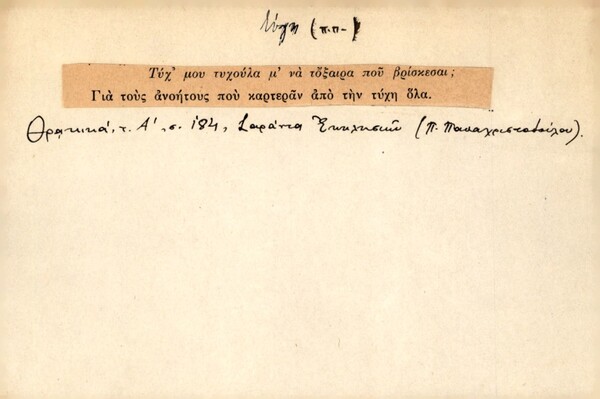 τύχη (π.π-)
Τύχ' μου τυχούλα μ' νὰ τὄξαιρα ποῦ βρίσκεσαι ;
Γιὰ τοὺς ἀνοήτους ποὺ καρτερᾶν ἀπὸ τὴν τύχη ὅλα.
Θρακικά, τ. Α', σ. 184, Σαράντα Ἐκκλησιῶν (Π. Παπαχριστοδούλου).